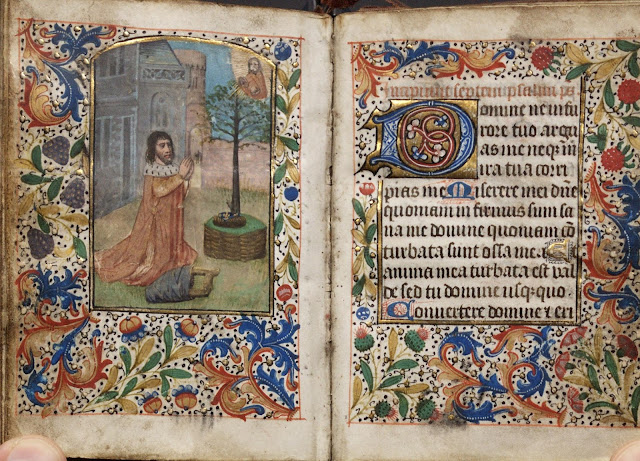 Incipiūt septem psalmi ps
Domine ne in fu
rore tuo argu
as me neqꝫ in
ira tua corri
pias me Miserere mei dn̄e
quoniam infirmus sum sa
na me domine quoniam cō
turbata sunt ossa mea Et
anima mea turbata est val
de sed tu domine usqꝫ quo
Convertere domine ⁊ eri